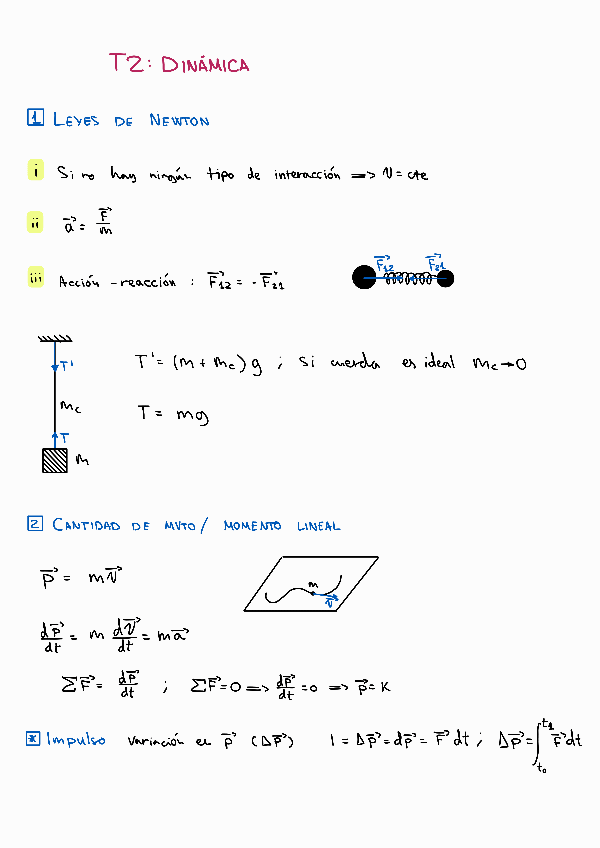 T2: DINÁMICA
1 LEYES DE NEWTON
i Si no hay ningún tipo de interacción => v = cte
ii a⃗ = F⃗/m
iii Acción - reacción : F⃗12 = - F⃗21
F⃗12 F⃗21
T'
T' = (m + mc) g ; si cuerda es ideal mc → 0
mc
T = mg
T
m
2 CANTIDAD DE MVTO / MOMENTO LINEAL
p⃗ = m v⃗
m
v⃗
dp⃗/dt = m dv⃗/dt = m a⃗
ΣF⃗ = dp⃗/dt ; ΣF⃗ = 0 => dp⃗/dt = 0 => p⃗ = K
* Impulso variación en p⃗ (Δp⃗) I = Δp⃗ = dp⃗ = F⃗ dt ; Δp⃗ = ∫t0t1 F⃗ dt